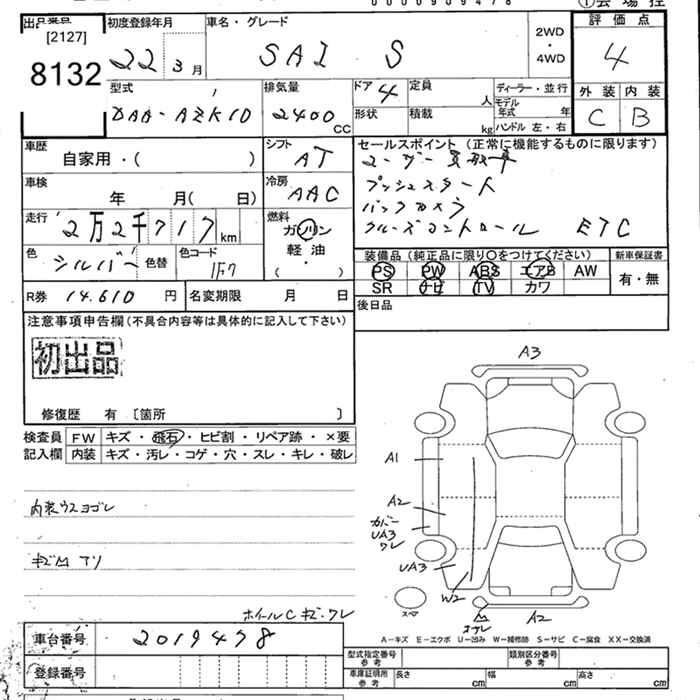 0000909478
①会場控
出品番号
[2127]
8132
初度登録年月
22年3月
車名・グレード
SAI S
2WD
・
4WD
評価点
4
型式
DAA-AZK10
排気量
2400CC
ドア 4
形状
定員 人
積載 kg
ディーラー・並行
モデル年式 年
ハンドル 左・右
外装 内装
C B
車歴
自家用・( )
シフト
AT
車検
年 月( 日)
冷房
AAC
走行
2万2千717km
燃料
ガソリン
軽油
( ・ )
色
シルバー
色替
色コード
1F7
R券 14,610円
名変期限 月 日
セールスポイント(正常に機能するものに限ります)
ユーザー買取車
プッシュスタート
バックカメラ
クルーズコントロール ETC
装備品(純正品に限り○をつけてください)
PS PW ABS エアB AW
SR ナビ TV カワ
新車保証書
有・無
後日品
注意事項申告欄(不具合内容等は具体的に記入して下さい)
初出品
修復歴 有 〔箇所 〕
検査員記入欄
FW キズ・飛石・ヒビ割・リペア跡・×要
内装 キズ・汚レ・コゲ・穴・スレ・キレ・破レ
内装ウスヨゴレ
キズ凹アリ
ホイールCキズ・ワレ
A3
A1
A2
カバー
UA3
ワレ
UA3
W2
スペア
A2
A-キズ E-エクボ U-凹み W-補修跡 S-サビ C-腐食 XX-交換済
車台番号
2019478
登録番号
型式指定番号
参考
類別区分番号
参考
車庫証明所
参考
長さ cm
幅 cm
高さ cm